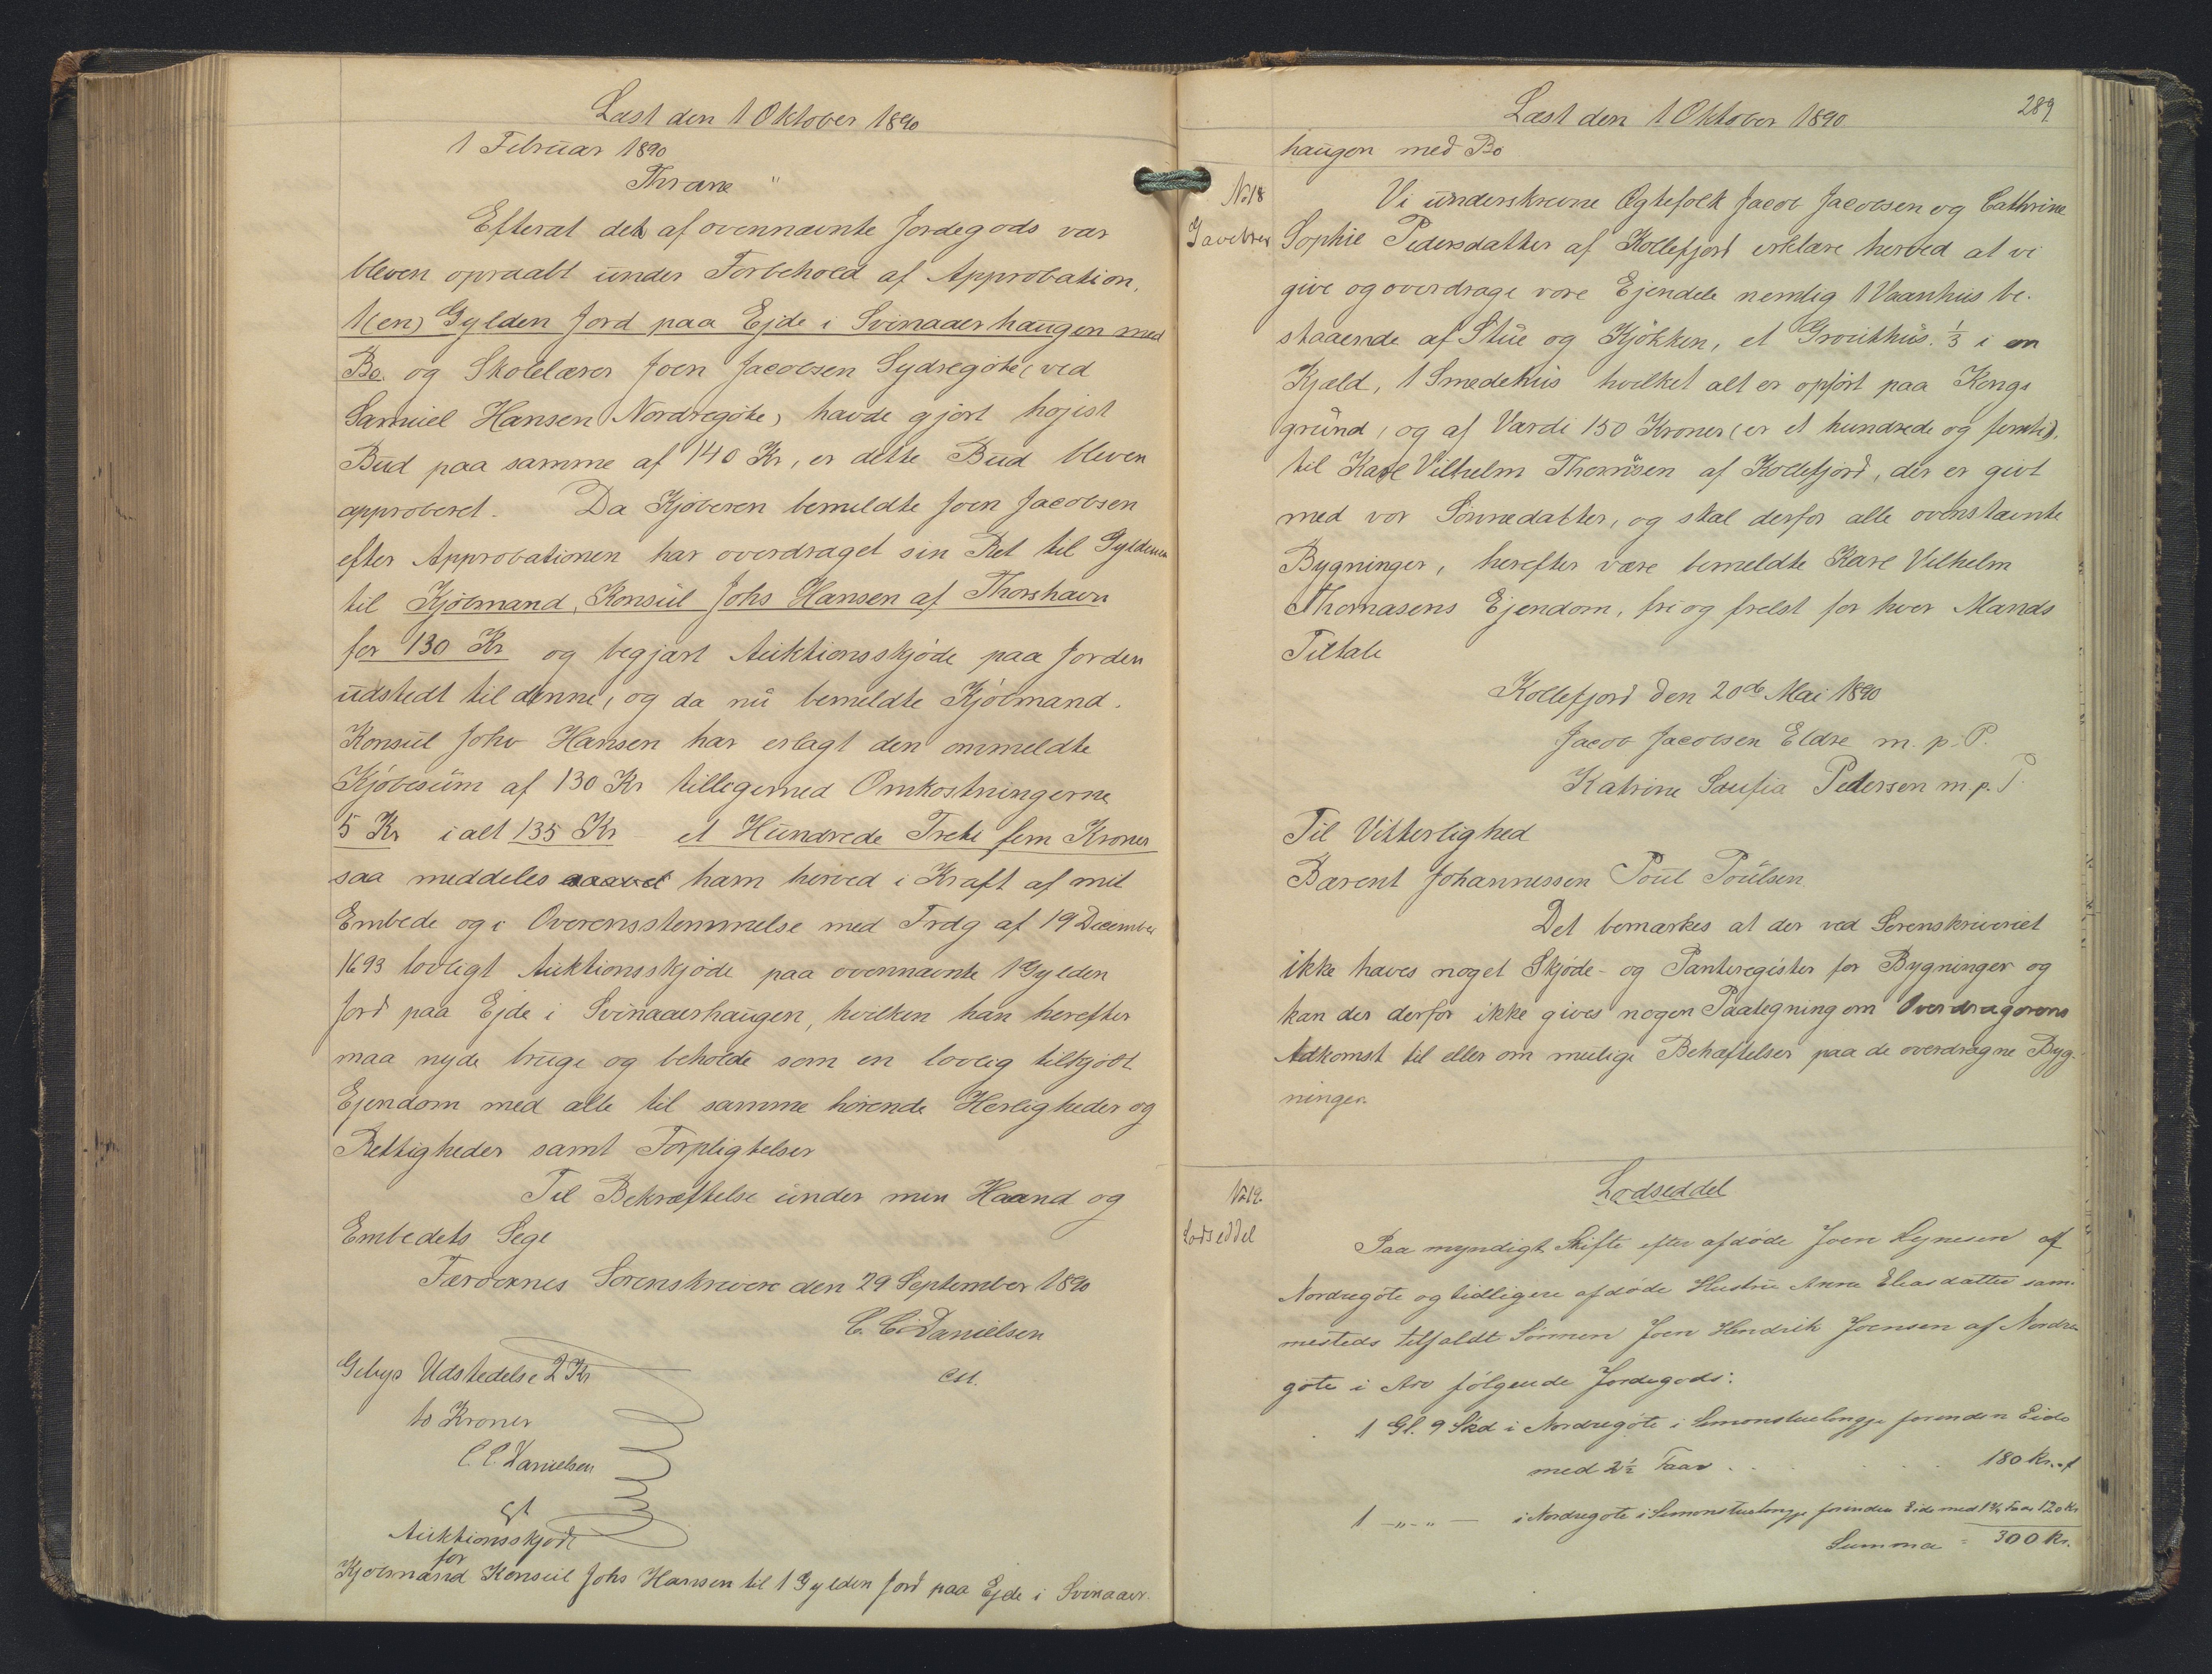 Læst den 1 Oktober 1890
1 Februar 1890
Thrane "
Efterat det af ovennævnte Jordegods var
bleven opraabt under Forbehold af Approbation,
1(en) Gylden Jord paa Ejde i Svinaaerhaugen med
Bo. og Skolelærer Joen Jacobsen Sydregøte (ved
Samuel Hansen Nordregøte) havde gjørt højist
Bud paa samme af 140 Kr, er dette Bud bleven
approberet. Da Kjøberen bemeldte Joen Jacobsen
efter Approbationen har overdraget sin Ret til Gyldenen
til Kjøbmand, Konsul Johs Hansen af Thorshavn
for 130 Kr og begjært Auktionsskjøde paa Jorden
udstedt til denne, og da nu bemeldte Kjøbmand.
Konsul Johs Hansen har erlagt den ommeldte
Kjøbesum af 130 Kr tilligemed Omkostningerne
5 Kr ialt 135 Kr et Hundrede Treti fem Kroner
saa meddeles ham herved i Kraft af mit
Embede og i Overensstemmelse med Frdg af 19 December
1693 lovligt Auktionsskjøde paa ovennævnte 1 Gylden
Jord paa Ejde i Svinaaerhaugen, hvilken han herefter
maa nyde bruge og beholde som en lovlig tilkjøbt
Ejendom med alle til samme hørende Herligheder og
Rettigheder samt Forpligtelser
Til Bekræftelse under min Haand og
Embedets Segl
Færøernes Sorenskriveri den 29 September 1890
C. C. Danielsen
cst.
Gebyr Udstedelse 2 Kr
to Kroner
C. C. Danielsen
cst
Auktionsskjøde
for
Kjøbmand Konsul Johs Hansen til 1 Gylden Jord paa Ejde i Svinaaer-
Læst den 1 Oktober 1890
289
haugen med Bo
No 18
Gavebrev
Vi underskrevne Ægtefolk Jacob Jacobsen og Cathrine
Sophie Pedersdatter af Kollefjord erklære herved at vi
give og overdrage vore Ejendele nemlig 1 Vaanhus be-
staaende af Stue og Kjøkken, et Grouthus. 1/3 i en
Kjæld, 1 Smedehus hvilket alt er opført paa Kongs
grund, og af Værdi 150 Kroner (er et hundrede og femti).
til Karl Vilhelm Thomasen af Kollefjord, der er givt
med vor Sønnedatter, og skal derfor alle ovenstaænte
Bygninger, herefter være bemeldte Karl Vilhelm
Thomasens Ejendom, fri og frelst for hver Mands
Tiltale
Kollefjord den 20de Mai 1890
Jacob Jacobsen Eldre m. p. P.
Katrine Saufia Pedersen m.p. P.
Til Vitterlighed
Barent Johannessen Poul Poulsen
Det bemærkes at der ved Sorenskriveriet
ikke haves noget Skjøde- og Panteregister for Bygninger og
kan der derfor ikke gives nogen Paategning om Overdragerens
Adkomst til eller om mulige Behæftelser paa de overdragne Byg-
ninger.
No 19.
Lodseddel
Lodseddel
Paa myndigt Skifte efter afdøde Joen Lynesen af
Nordregøte og tidligere afdøde Hustru Anna Eliasdatter sam-
mesteds tilfaldt Sønnen Joen Hendrik Joensen af Nordre
gøte i Arv følgende Jordegods:
1 Gl. 9 Skd i Nordregøte i Simonstuelongje forinden Eide
med 2 1/2 Faar . . . . 180 Kr. -
1 -"-"- i Nordregøte i Simonstuelongje forinden Eide med 1 3/4 Faar 120 Kr
Summa = 300 Kr.